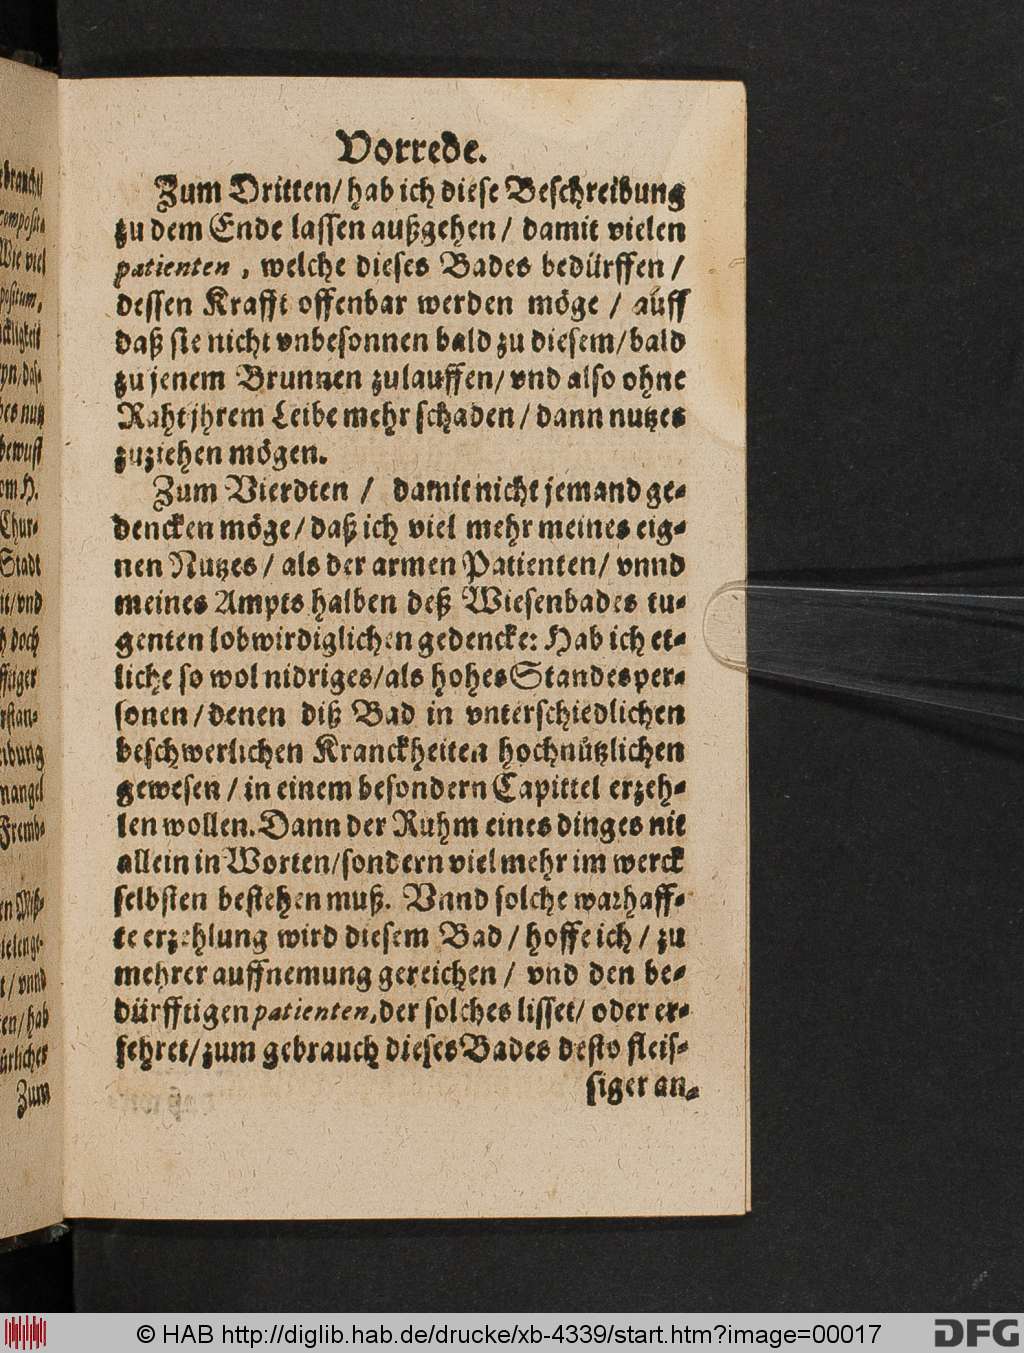 Vorrede.
Zum Dritten/ hab ich diese Beschreibung
zu dem Ende lassen außgehen / damit vielen
patienten , welche dieses Bades bedürffen /
dessen Krafft offenbar werden möge / auff
daß sie nicht vnbesonnen bald zu diesem/ bald
zu jenem Brunnen zulauffen/ vnd also ohne
Raht jhrem Leibe mehr schaden / dann nutzes
zuziehen mögen.
Zum Vierdten / damit nicht jemand ge-
dencken möge / daß ich viel mehr meines eig-
nen Nutzes / als der armen Patienten/ vnnd
meines Ampts halben deß Wiesenbades tu-
genten lobwirdiglichen gedencke: Hab ich et-
liche so wol nidriges/ als hohes Standesper-
sonen / denen diß Bad in vnterschiedlichen
beschwerlichen Kranckheiten hochnützlichen
gewesen / in einem besondern Capittel erzeh-
len wollen. Dann der Ruhm eines dinges nit
allein in Worten/ sondern viel mehr im werck
selbsten bestehen muß. Vnnd solche warhaff-
te erzehlung wird diesem Bad / hoffe ich / zu
mehrer auffnemung gereichen / vnd den be-
dürfftigen patienten, der solches lisset/ oder er-
fehret/ zum gebrauch dieses Bades desto fleis-
siger an-
composita
Wie viel
positum,
bewust
om H.
Chur-
Stadt
it/ vnd
doch
ibung
mangel
Frembd-
t / vnnd
ten / hab
ürliches
Zum
© HAB http://diglib.hab.de/drucke/xb-4339/start.htm?image=00017
DFG